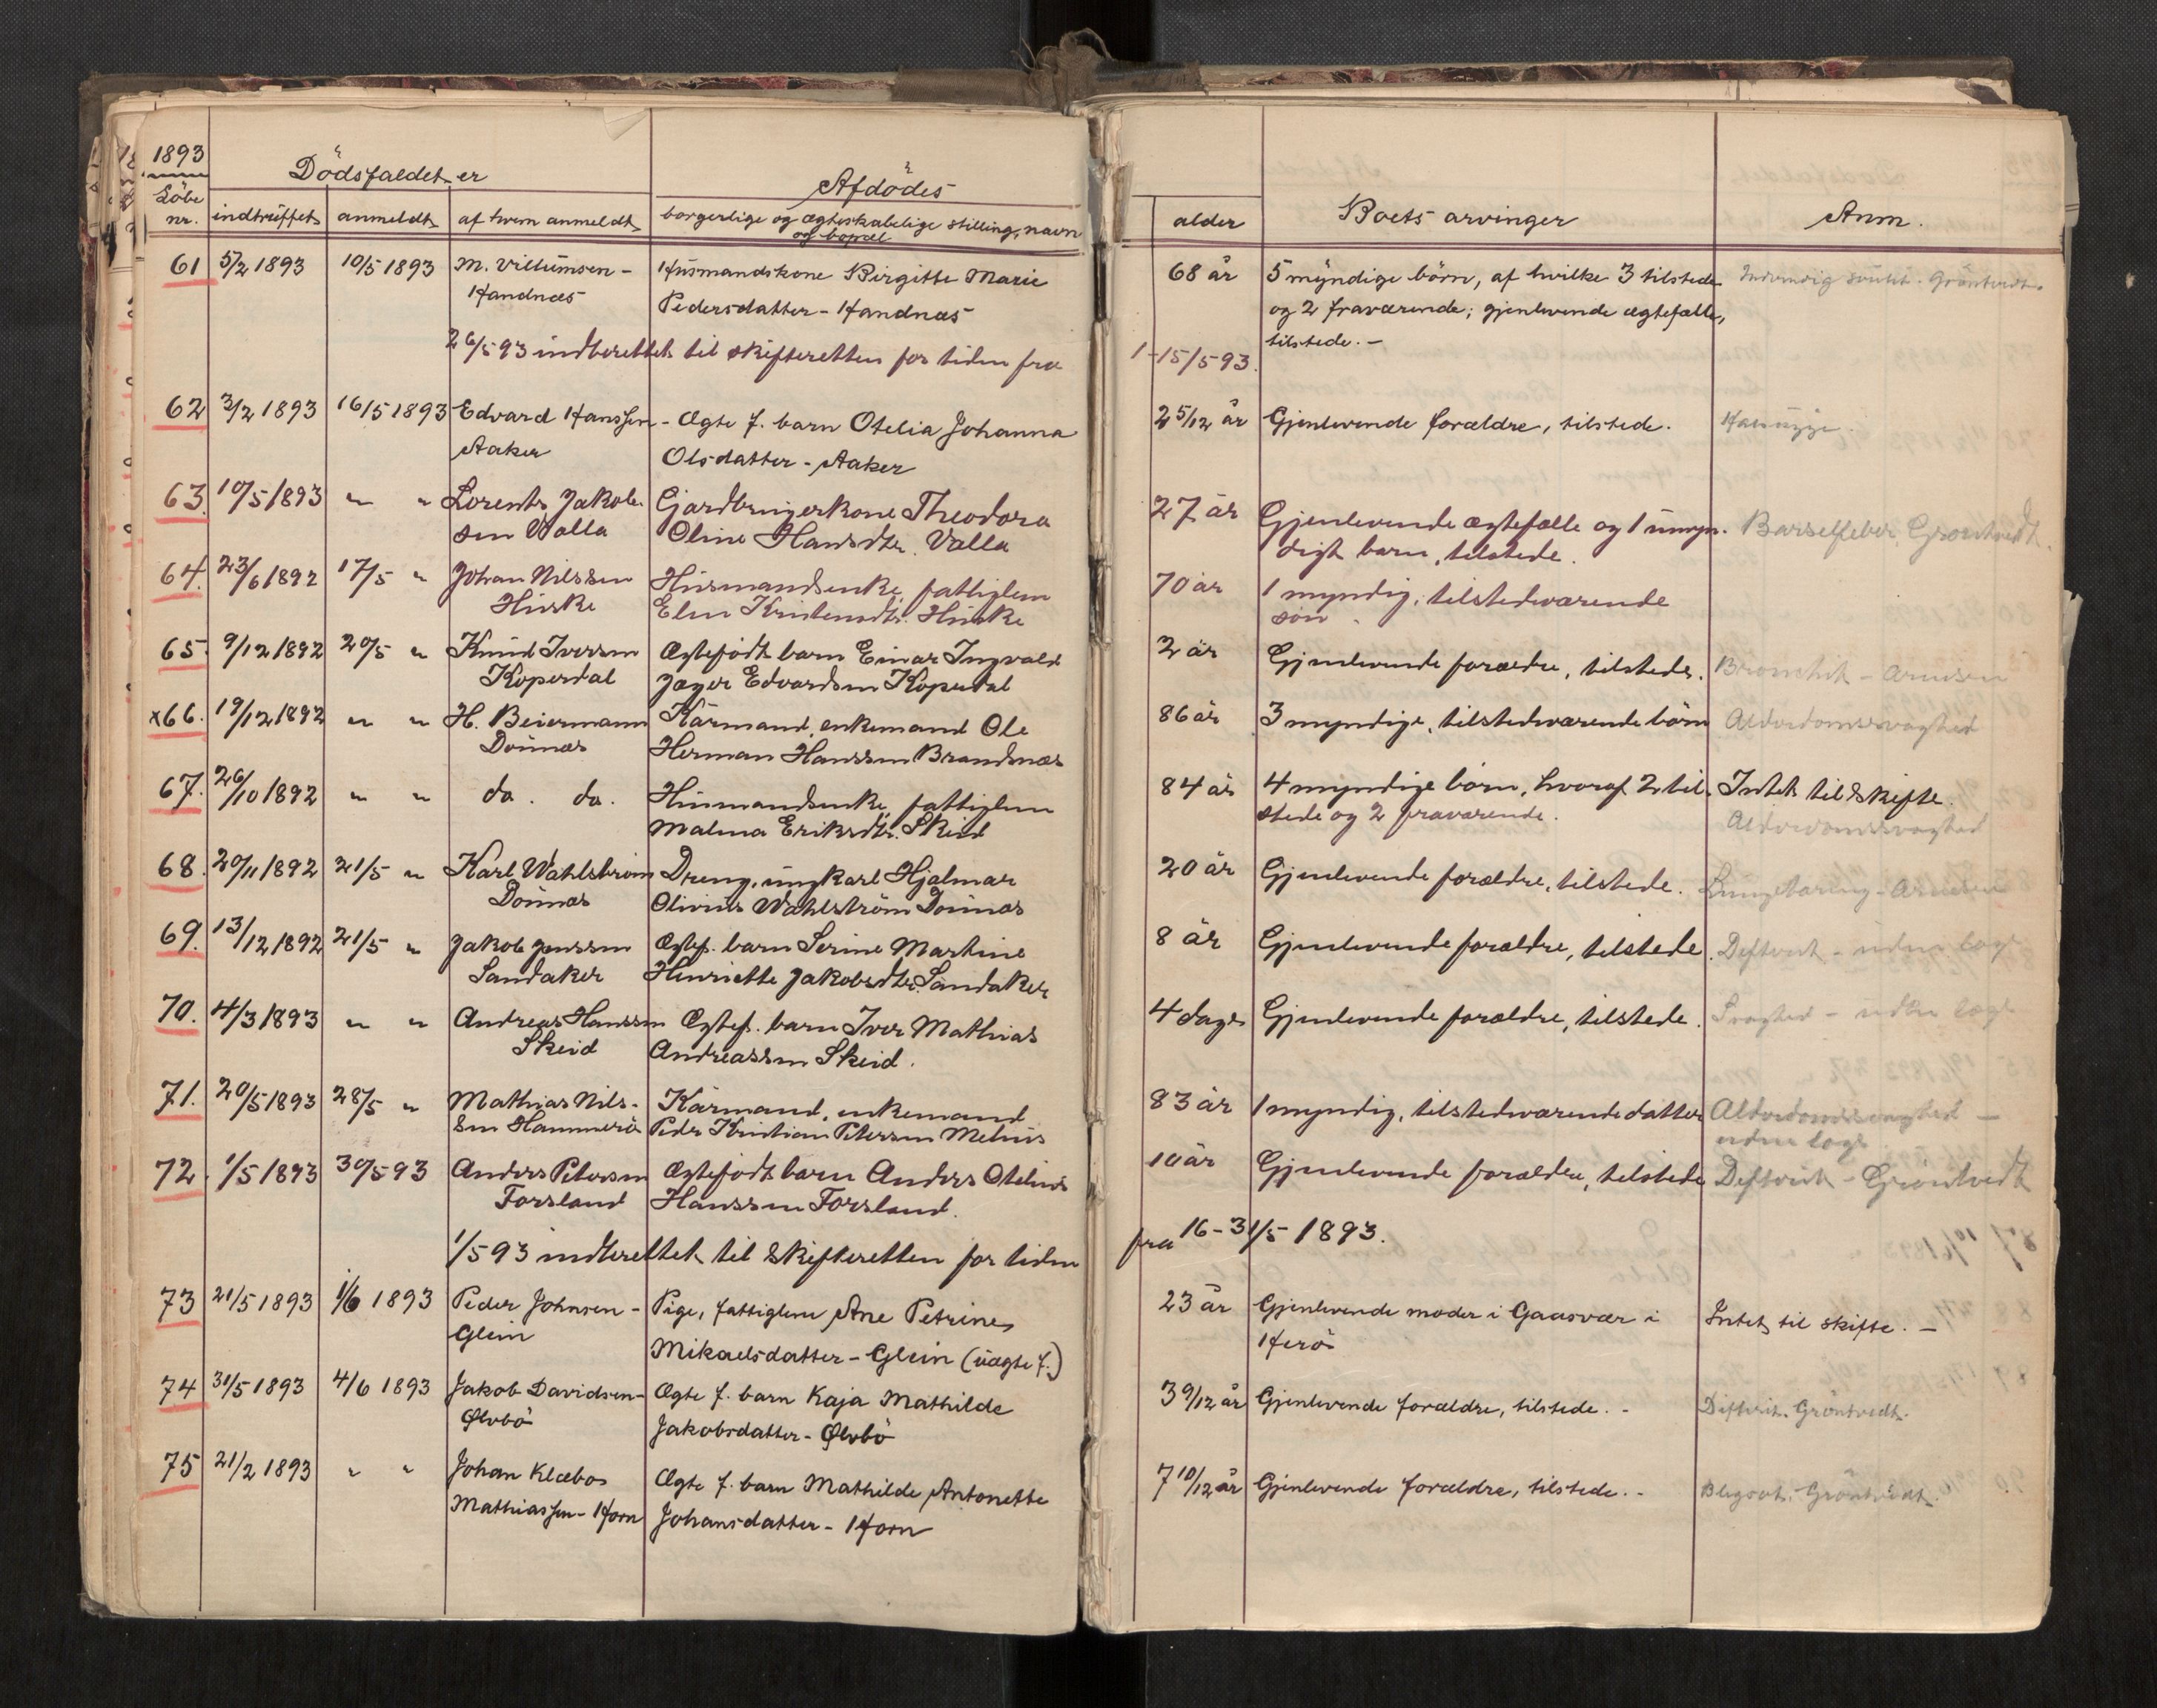 1893
Löbe
nr.
Dödsfaldet er
indtruffet
anmeldt
af hvem anmeldt
Afdödes
borgerlige og ægteskabelige stilling, navn
og bopæl
alder
Boets arvinger
Anm.
61 5/2 1893 10/5 1893 M. Villumsen - Husmandskone Birgitte Marie 68 år 5 myndige börn, af hvilke 3 tilstede
Handnæs Pedersdatter - Handnæs og 2 fraværende; gjenlevende ægtefælle,
tilstede. -
26/5 93 indberettet til skifteretten for tiden fra 1-15/5-93.
62 3/2 1893 16/5 1893 Edvard Hanssen - Ægte f. barn Otelia Johanna 2 5/12 år Gjenlevende forældre, tilstede.
Aaker Olsdatter - Aaker
63. 10/5 1893 " " Lorents Jakob- Gjardbrugerkone Theodora 27 år Gjenlevende ægtefælle og 1 umyn- Barselfeber Grøntvedt.
sen Valla Oline Hansdtr. Valla digt barn, tilstede.
64. 23/6 1892 17/5 " Johan Nilssen Husmandsenke, fattiglem 70 år 1 myndig, tilstedeværende
Huske Elen Kristensdtr. Huske sön.
65. 9/12 1892 20/5 " Knud Iverssen Ægtefödt barn Einar Ingvald 2 år Gjenlevende forældre, tilstede. Bronchit - Arnesen
Koperdal Jæger Edvardsen Koperdal
x66. 19/12 1892 " " H. Beiermann Kårmand, enkemand Ole 86 år 3 myndige, tilstedeværende börn Alderdomssvaghed
Dönnæs Herman Hanssen Brandsnæs
67. 26/10 1892 " " do. do. Husmandsenke, fattiglem 84 år 4 myndige börn, hvoraf 2 til- Intet til skifte.
Malena Eriksdtr. Skeid stede og 2 fraværende. Alderdomssvaghed
68. 20/11 1892 21/5 " Karl Wahlström Dreng, ungkarl Hjalmar 20 år Gjenlevende forældre, tilstede. Lungetæring - Arnesen
Dönnæs Olivius Wahlström Dönnæs
69. 13/12 1892 21/5 " Jakob Jenssen Ægtef. barn Serine Martine 8 år Gjenlevende forældre, tilstede. Defterit - uden læge
Sandaker Henriette Jakobsdtr. Sandaker
70. 4/3 1893 " " Andreas Hanssen Ægtef. barn Iver Mathias 4 dage Gjenlevende forældre, tilstede. Svaghed - uden læge
Skeid Andreassen Skeid.
71. 20/5 1893 28/5 " Mathias Nils- Kårmand, enkemand 83 år 1 myndig, tilstedeværende datter Alderdomssvaghed -
sen Hammerö Peder Kristian Petersen Mehus uden læge
72. 1/5 1893 30/5 93 Anders Petersen Ægtefödt barn Anders Otelius 10 år Gjenlevende forældre, tilstede Defterit - Grøntvedt
Forsland Hanssen Forsland.
1/5 93 indberettet til skifteretten for tiden fra 16-31/5 1893.
73 21/5 1893 1/6 1893 Peder Johnsen - Pige, fattiglem Ane Petrine 23 år Gjenlevende moder i Gaasvær i Intet til skifte. -
Glein Mikaelsdatter - Glein (uægte f.) Herö
74 31/5 1893 4/6 1893 Jakob Davidsen - Ægte f. barn Kaja Mathilde 3 9/12 år Gjenlevende forældre, tilstede. - Difterit. Gröntvedt.
Ølvbö Jakobsdatter - Ølvbö
75 21/2 1893 " " Johan Klæbos Ægte f. barn Mathilde Antonette 7 10/12 år Gjenlevende forældre, tilstede. - Blegsot. Gröntvedt.
Mathiassen - Horn Johansdatter - Horn